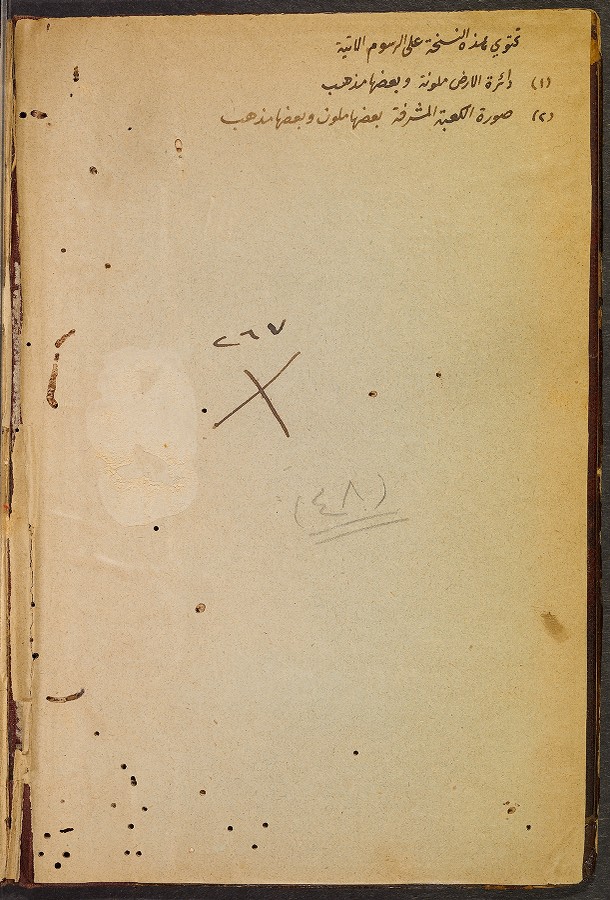 تحتوي هذه النسخة على الرسوم الاتية
(١) دائرة الارض ملونة وبعضها مذهب
(٢) صورة الكعبة المشرفة بعضها ملون وبعضها مذهب
٢٦٧
(٤٨)